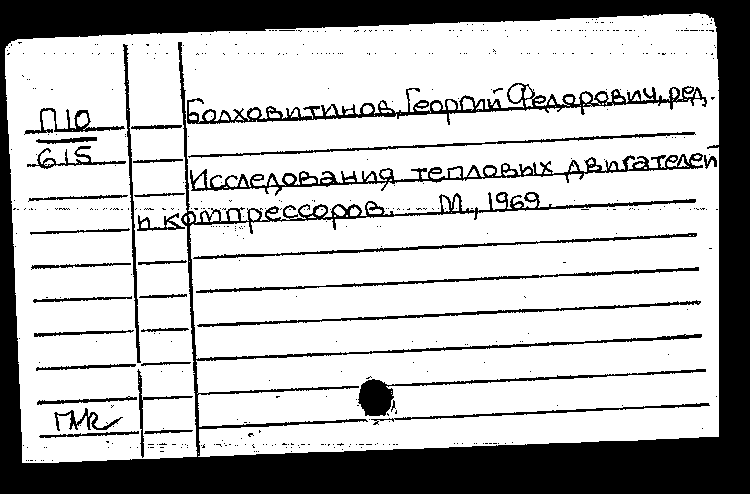 П10
615
Болховитинов, Георгий Федорович, ред.
Исследования тепловых двигателей
и компрессоров. М., 1969.